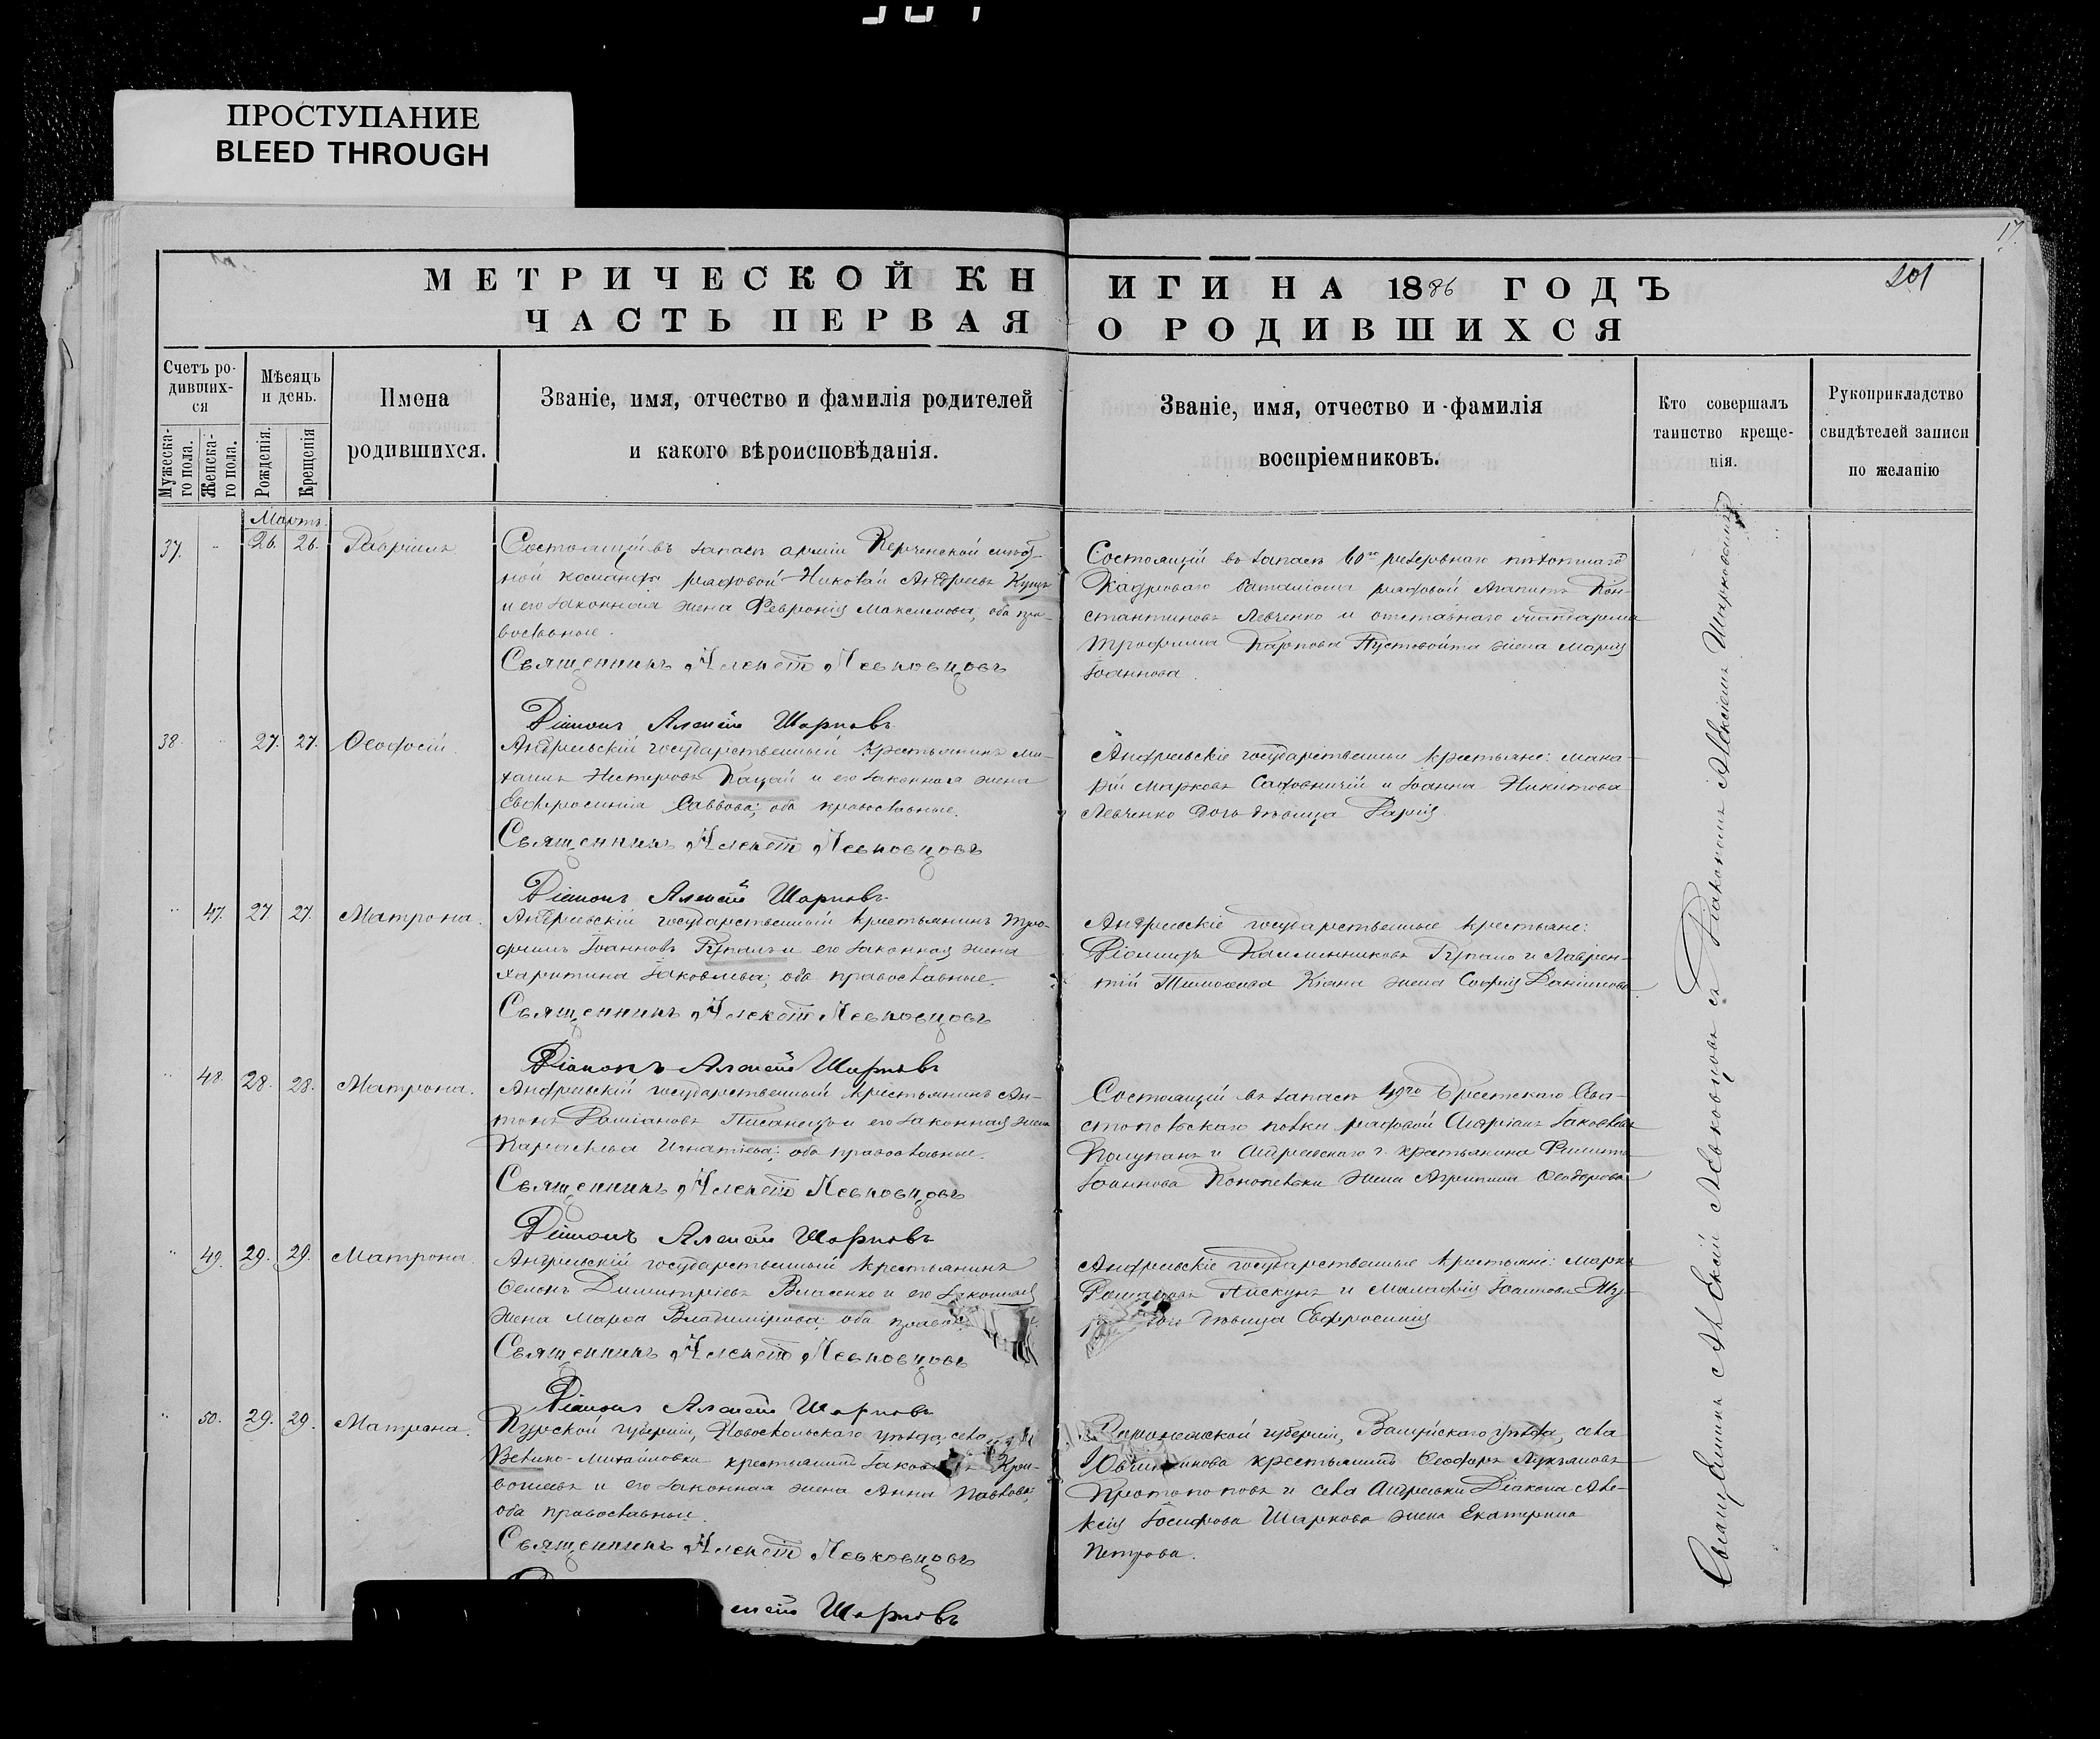 ПРОСТУПАНИЕ
BLEED THROUGH
17.
201
МЕТРИЧЕСКОЙ КН
ИГИ НА 1886 ГОДЪ
ЧАСТЬ ПЕРВАЯ
О РОДИВШИХСЯ
Счетъ ро-
дивших-
ся
Мужеска-
го пола.
Женска-
го пола.
Мѣсяцъ
и день.
Рожденія.
Крещенія
Имена
родившихся.
Званіе, имя, отчество и фамилія родителей
и какого вѣроисповѣданія.
Званіе, имя, отчество и фамилія
воспріемниковъ.
Кто совершалъ
таинство креще-
нія.
Рукоприкладство
свидѣтелей записи
по желанію
Мартъ.
37. 26. 26. Гавріилъ
Состоящій въ запасѣ арміи Керченской
ной команды рядовой Николай Андреевъ Куцъ
и его законная жена Февронія Максимова; оба пра-
вославные.
Священникъ Алексѣй Левковцовъ
Діаконъ Алексѣй Шарковъ
Состоящій въ запасѣ 60го резервнаго пѣхотнаго
Кадроваго баталіона рядовой Агапитъ Кон-
стантиновъ Левченко и отставнаго жандарма
Трофима Карпова Пустовойта жена Марія
Іоаннова.
38. 27. 27. Ѳеодосій.
Андреевскій государственный крестьянинъ Ми-
хаилъ Нестеровъ Кацай и его законная жена
Евфросинія Саввова; оба православные.
Священникъ Алексѣй Левковцовъ
Діаконъ Алексѣй Шарковъ
Андреевскіе государственные крестьяне: Мака-
рій Марковъ Садовничій и Іоанна Никитова
Левченко дочь дѣвица Дарія.
47. 27. 27. Матрона.
Андреевскій государственный крестьянинъ Тро-
фимъ Іоанновъ Купалъ и его законная жена
Харитина Іаковлева; оба православные.
Священникъ Алексѣй Левковцовъ
Діаконъ Алексѣй Шарковъ
Андреевскіе государственные крестьяне:
и Лаврен-
тій Тимоѳеева Кіяна жена Софія Даніилова
48. 28. 28. Матрона.
Андреевскій государственный крестьянинъ Ан-
тонъ Даміановъ Писанецъ и его законная жена
Игнатіева; оба православные.
Священникъ Алексѣй Левковцовъ
Діаконъ Алексѣй Шарковъ
Состоящій въ запасѣ 49го Брестскаго Сева-
стопольскаго полка рядовой Андріанъ Іаковлевъ
и Андреевскаго г. крестьянина Филиппа
Іоаннова Коноплевки жена Агрипина Ѳеодорова
49. 29. 29. Матрона.
Андреевскій государственный крестьянинъ
Семенъ Димитріевъ Власенко и его законная
жена Марѳа Владимірова; оба право
Священникъ Алексѣй Левковцовъ
Діаконъ Алексѣй Шарковъ
Андреевскіе государственные крестьяне: Маркъ
Пискунъ и
дѣвица Евфросинія
50. 29. 29. Матрона.
Курской губерніи, Новооскольскаго уѣзда, села
Велико-Михайловки крестьянинъ Іаковъ Кри-
вошеевъ и его законная жена Анна Павлова;
оба православные.
Священникъ Алексѣй Левковцовъ
ексѣй Шарковъ
Воронежской губерніи, Валуйскаго уѣзда, села
крестьянинъ Ѳеодоръ Лукьяновъ
Протопоповъ и села Андреевки Діакона Але-
ксія Іосифова Шаркова жена Екатерина
Петрова.
Священникъ Алексій Левковцовъ съ Діакономъ Алексіемъ Шарковымъ